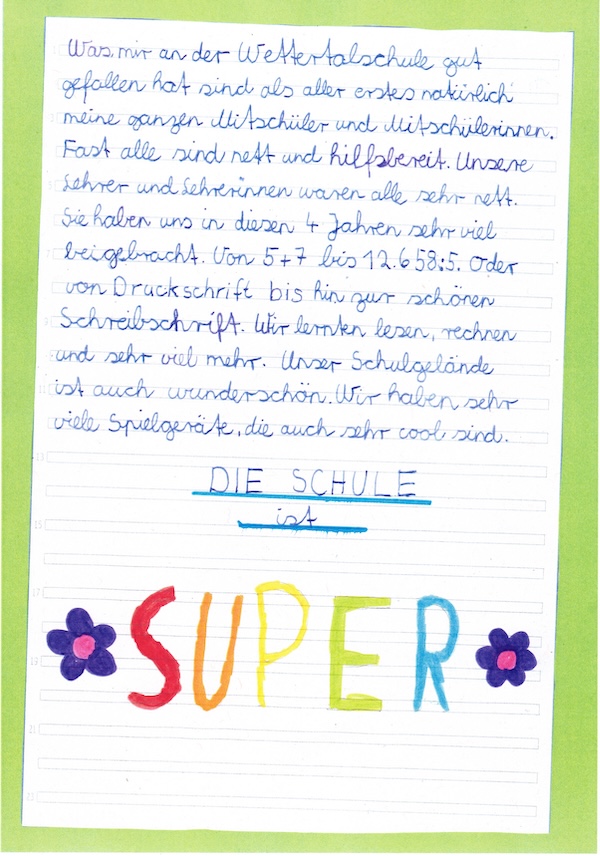 Was mir an der Wettertalschule gut
gefallen hat sind als aller erstes natürlich
meine ganzen Mitschüler und Mitschülerinnen.
Fast alle sind nett und hilfsbereit. Unsere
Lehrer und Lehrerinnen waren alle sehr nett.
Sie haben uns in diesen 4 Jahren sehr viel
beigebracht. Von 5+7 bis 12.658:5. Oder
von Druckschrift bis hin zur schönen
Schreibschrift. Wir lernten lesen, rechnen
und sehr viel mehr. Unser Schulgelände
ist auch wunderschön. Wir haben sehr
viele Spielgeräte, die auch sehr cool sind.
DIE SCHULE
ist
SUPER